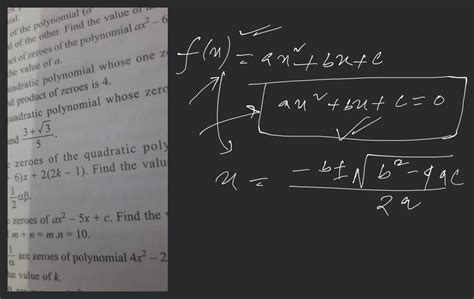 ial.
of the polynomial (a
al of the other. Find the value of a.
uct of zeroes of the polynomial ax² – 6
he value of a.
uadratic polynomial whose one z
nd product of zeroes is 4.
uadratic polynomial whose zero
and 3 + √3 / 5 .
e zeroes of the quadratic poly
+ 6)x + 2(2k – 1). Find the valu
1/2 αβ.
e zeroes of ax² – 5x + c. Find the
m + n = m.n = 10.
1/α are zeroes of polynomial 4x² – 2
he value of k.
f(x) = ax² + bx + c
ax² + bx + c = 0
x = -b ± √b² - 4ac / 2a